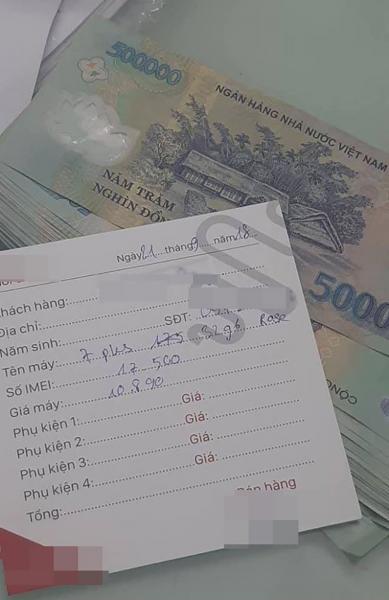 500000
NGÂN HÀNG NHÀ NƯỚC VIỆT NAM
NĂM TRĂM
NGHÌN ĐỒN
50000
CỘNG
Ngày 21 tháng 9 năm 18
hách hàng:
Địa chỉ:
Năm sinh: SĐT:
Tên máy: 7 plus 32gb Rose
Số IMEI: 17 500
Giá máy: 10.890
Phụ kiện 1: Giá:
Phụ kiện 2: Giá:
Phụ kiện 3: Giá:
Phụ kiện 4: Giá:
Tổng:
án hàng